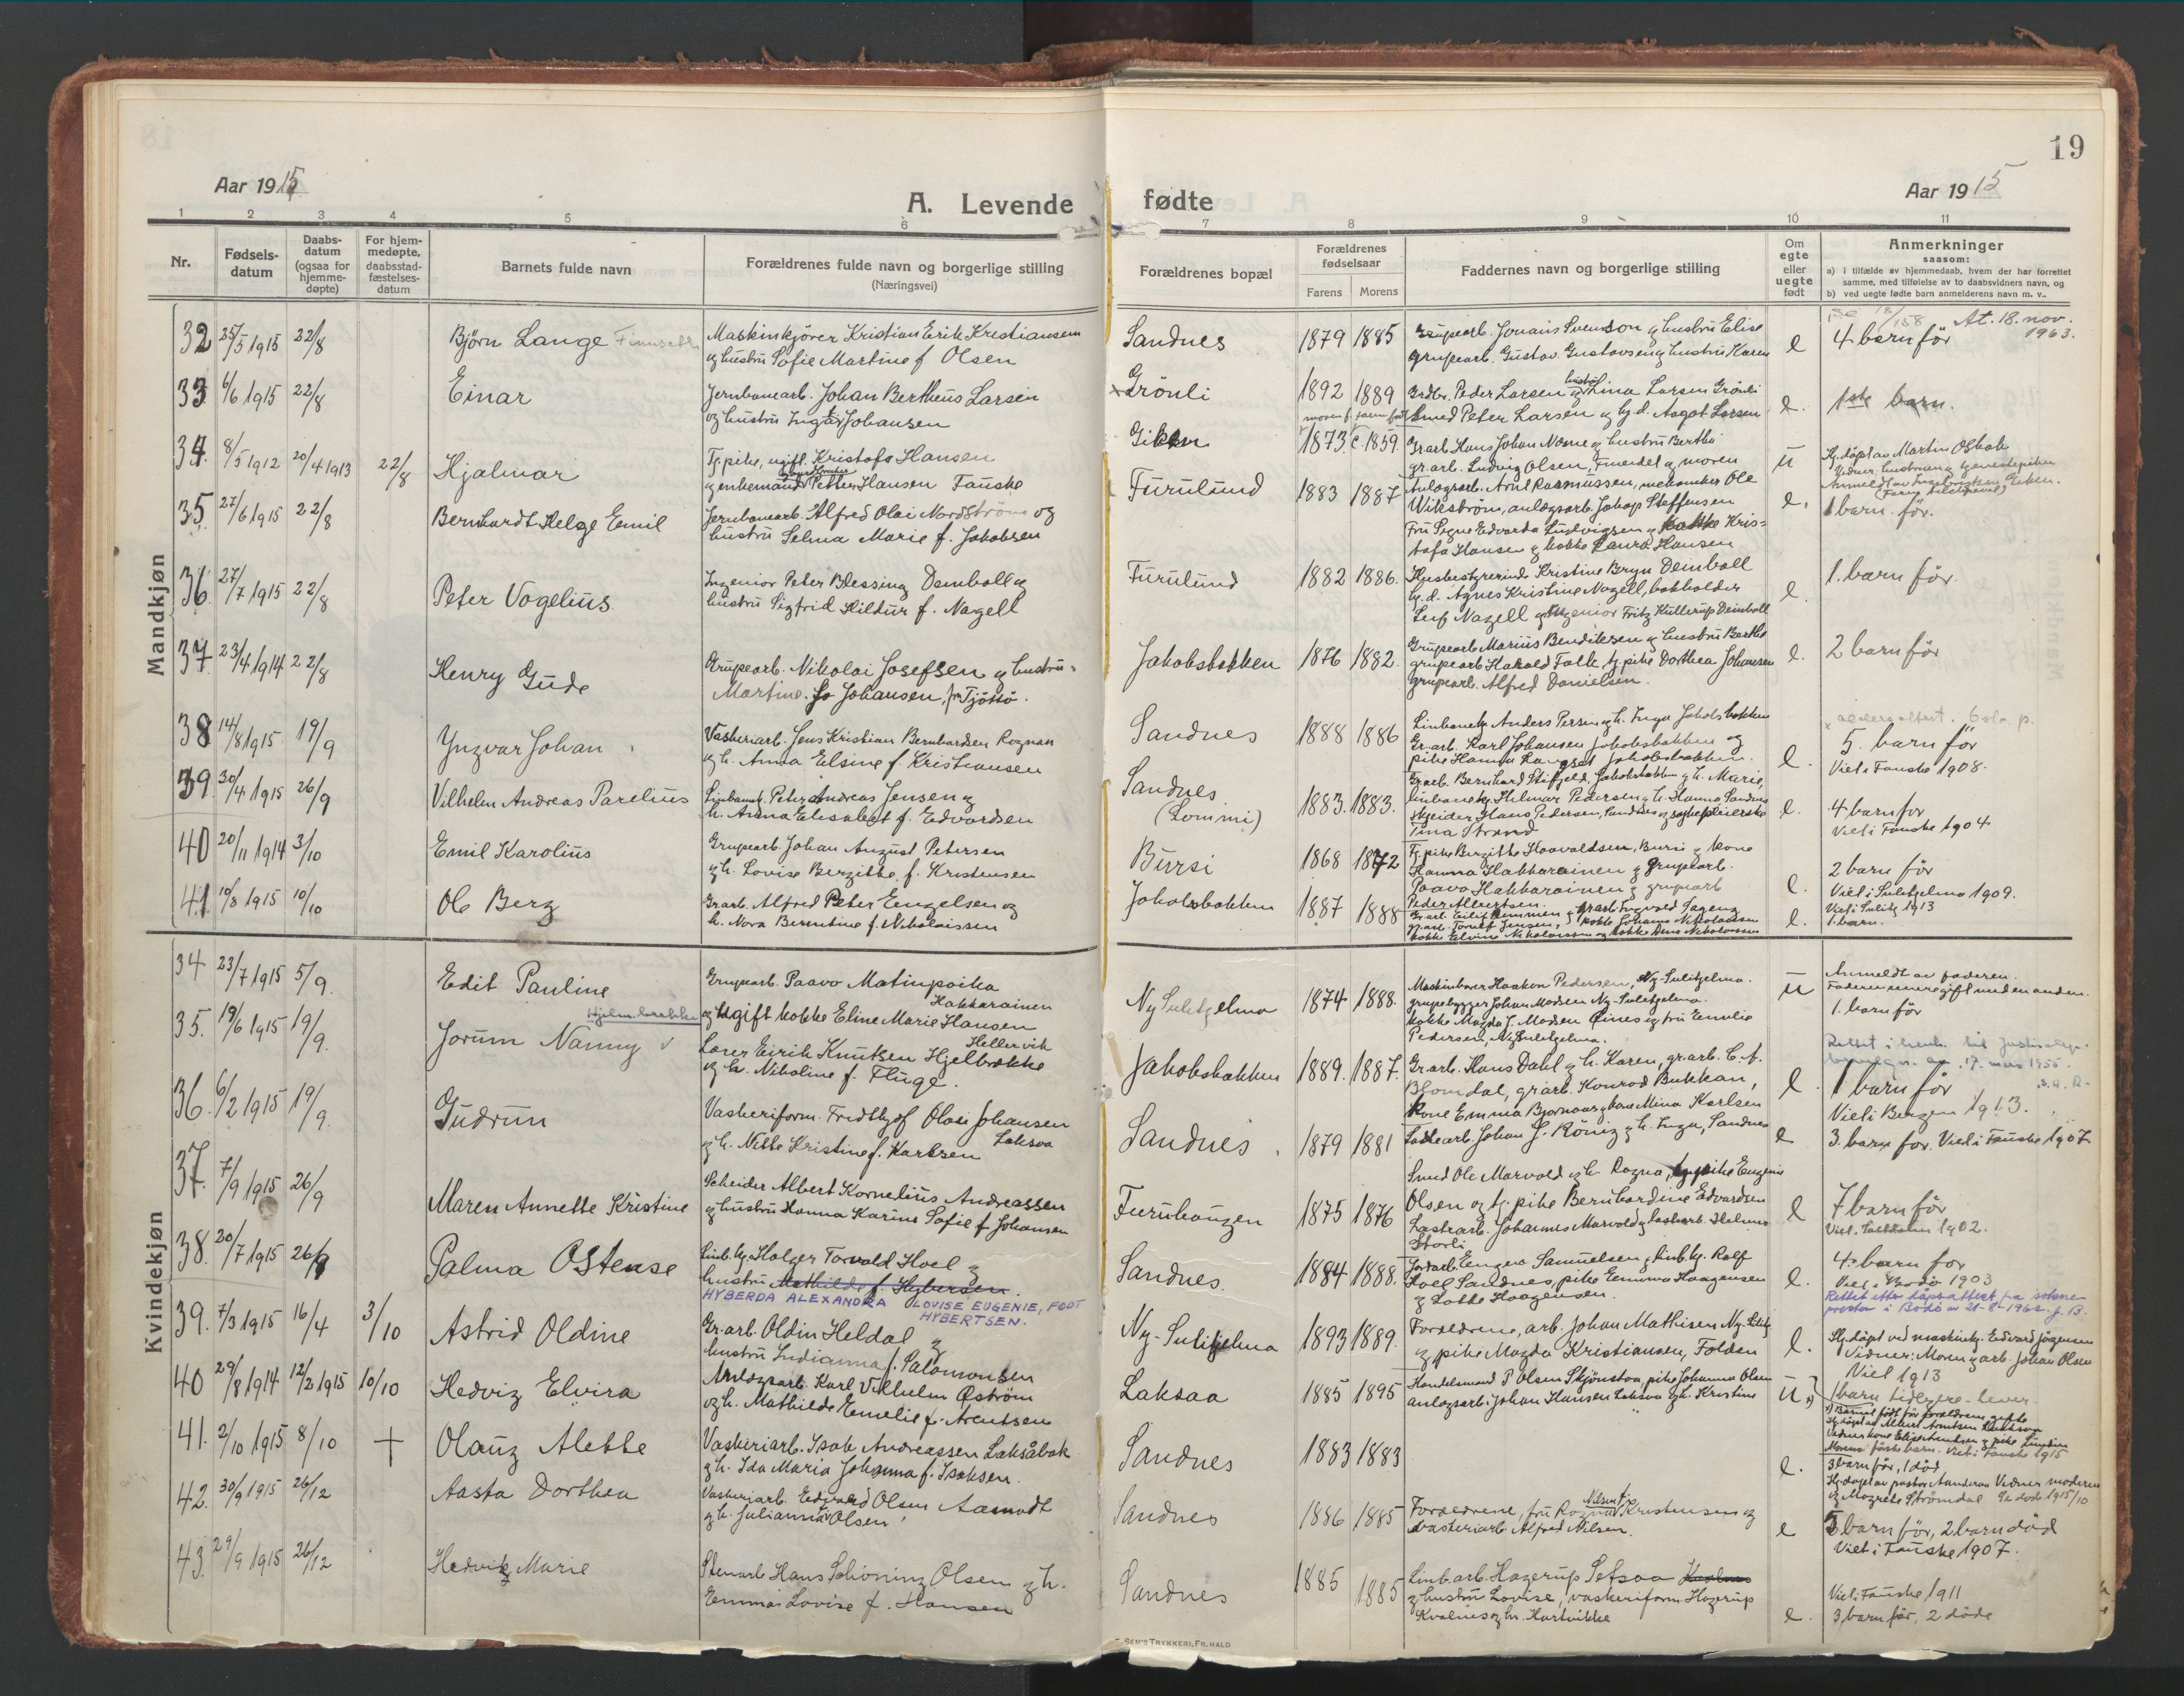 19
Aar 1915
A. Levende fødte
Aar 1915
1 2 3 4 5 6 7 8 9 10 11
Nr.
Fødsels-
datum
Daabs-
datum
(ogsaa for
hjemme-
døpte)
For hjem-
medøpte,
daabsstad-
fæstelses-
datum
Barnets fulde navn
Forældrenes fulde navn og borgerlige stilling
(Næringsvei)
Forældrenes bopæl
Forældrenes
fødselsaar
Farens Morens
Faddernes navn og borgerlige stilling
Om
egte
eller
uegte
født
Anmerkninger
saasom:
a) i tilfælde av hjemmedaab, hvem der har forrettet
samme, med tilføielse av to daabsvidners navn, og
b) ved uegte fødte barn anmelderens navn m. v..
Mandkjøn
32 25/5 1915 22/8 Bjørn Lange
Maskinkjører Kristian Erik Kristiansen
og hustru Sofie Martine f. Olsen
Sandnes 1879 1885
Grupearb. Jonais Svendson og hustru Elise
grupearb. Gustav Gustavsen og hustru Karen
e 4 barn før At. 18. nov.
1963.
33 6/6 1915 22/8 Einar
Jernbanearb. Johan Bertheus Larsen
og hustru Inga f. Johansen
Grönli 1892 1889
Grdbr. Peder Larsen og hustru Lina Larsen Grönli
Smed Peter Larsen og tj.d. Aagot Larsen
e. 1ste barn.
34. 8/5 1912 20/4 1913 22/8 Hjalmar
Tj. pike, ugift. Kristofa Hansen
og enkemand Petter Hansen Fauske
Giken 1873. c. 1859.
Grarb. Hans Johan Næsne og hustru Bertha
gr.arb. Ludvig Olsen, Finneidet og moren
u Hj. døpt av Martin Olsbak
35. 27/6 1915 22/8 Bernhardt Helge Emil
Jernbanearb. Alfred Olai Nordström og
hustru Selma Marie f. Jakobsen
Furulund 1883 1887
Anlægsarb. Arnt Rasmussen, mekaniker Ole
Wikström, anlægsarb. Jakop Steffensen
Fru Signe Edvarda Ludvigsen og kokke Kris=
tofa Hansen og kokke Laura Hansen
e. 1 barn før.
36. 27/7 1915 22/8 Peter Vogelius
Ingeniør Peter Blessing Demboll og
hustru Sigfrid Hildur f. Nagell
Furulund 1882 1886.
Husbestyrerinde Kristine Bryn Deinboll
tj. d. Agnes Kristine Nagell, bokholder
Leif Nagell og ingeniør Fritz Kullerup Deinboll
e. 1. barn før.
37 23/4 1914 22/8 Henry Gude
Grupearb. Nikolai Josefsen og hustru
Martine f. Johansen, fra Tjøttø.
Jakobsbakken 1876 1882.
Grupearb Marius Bendiksen og hustru Berthe
grupearb Harald Falk tj. pike Dorthea Johansen
grupearb. Alfred Danielsen.
e. 2 barn før
38 14/8 1915 19/9 Yngvar Johan
Vaskeriarb. Jens Kristian Bernhardsen Rognan
og h. Anna Elsine f. Kristiansen
Sandnes 1888 1886
Linbanekj. Anders Persen og h. Inga Jakobsbakken
Gr.arb. Karl Johansen Jakobsbakken og
pike Hanna Jakobsbakken.
e. 5. barn før
Viet i Fauske 1908.
39. 30/4 1915 26/9 Vilhelm Andreas Parelius
Linbanekj. Peter Andreas Jensen og
h. Anna Elisabet f. Edvardsen
Sandnes
(Lommi) 1883. 1883.
Grarb. Bernhard Stifjeld, Jakobsbakken og h. Marie,
linbanekj. Hilmar Pedersen og h. Hanna Sandnes
skeider Hans Pedersen, Sandnes og sykepleierske
Tina Strand
e. 4 barn før
Viet i Fauske 1904
40 20/11 1914 3/10 Emil Karolius
Grupearb. Johan August Petersen
og h. Lovise Bergitte f. Kristensen
Bursi 1868 1872
Tj. pike Birgitte Haavaldsen, Bursi og kone
Hanna Hakkarainen og grupearb.
Paavo Hakkarainen og grupearb
Peder Albertsen.
e. 2 barn før
Viet i Sulitjelma 1909.
41. 10/8 1915 10/10 Ole Berg
Grarb. Alfred Peter Engelsen og
h. Nora Berntine f. Nikolaissen
Jakobsbakken 1887 1888
e. Viet i Sulitj. 1913
1. barn.
Kvindekjøn
34 23/7 1915 5/9. Edit Pauline
Grupearb. Paavo Matinpoika
Hakkarainen
og ugift kokke Eline Marie Hansen
Hellervik
Ny Sulitjelma 1874 1888.
Maskinkører Haakon Pedersen, Ny-Sulitjelma.
grupebygger Johan Madsen Ny-Sulitjelma.
kokke Magda J. Madsen Øines og fru Emelie
Pedersen, Ny Sulitjelma.
u Anmeldt av faderen.
Faderen senere gift med en anden.
1. barn før
35. 19/6 1915 19/9. Jorunn Nanny Hjelmbrekke
Laser Eirik Knutsen Hjelbrekke
og h. Nikoline f. Fluge.
Jakobsbakken 1889. 1887.
Gr.arb. Hans Dahl og h. Karen, gr.arb. C. A.
Blomdal, grarb. Konrad Bukkan,
kone Emma Bjørnaas og kone Mina Karlsen
e. 1 barn før
Viet i Bergen 1913.
17. mars 1955.
36. 6/2 1915 19/9. Gudrun
Vaskeriform. Fridthjof Olai Johansen
Laksaa
og h. Nette Kristine f. Karlsen
Sandnes 1879 1881
Ladearb. Johan J. Rönig og h. Inga, Sandnes
e 3. barn før. Viet i Fauske 1907
37. 7/9 1915 26/9 Maren Annette Kristine
Scheider Albert Kornelius Andreassen
og hustru Hanna Karine Sofie f. Johansen
Furuhaugen 1875 1876
Smed Ole Marvold og h. Ragna, tj. pike Eugenie
Olsen og tj. pike Bernhardine Edvardsen
Lastearb. Johannes Marvold og lastearb. Helmer
Storli
e 7 barn før
Viet i Saltdalen 1902.
38. 20/7 1915 26/9 Palma Ostense
Linb.kj. Holger Torvald Hoel og
hustru Mathilde f. Hybersen.
HYBERDA ALEXANDRA LOVISE EUGENIE, FØDT
HYBERTSEN.
Sandnes. 1884 1888.
Jordarb. Enger Samuelsen og linb.kj. Rolf
Hoel Sandnes, pike Emma Haagensen
og Lotte Haagensen.
e. 4. barn før
Viet i Bodø 1903
Rettet etter dåpsattest fra sokne-
presten i Bodö av 21-8-1962. J. B.
39. 7/3 1915 16/4 3/10 Astrid Oldine
Gr.arb. Oldin Heldal og
hustru Indianna f. Salomonsen
Ny-Sulitjelma 1893 1889.
Forældrene, arb. Johan Mathisen Ny-Sulitj.
og pike Magda Kristiansen, Folden
e. Hj. døpt ved maskinkj. Edvard Jörgensen
Vidner: Moren og arb. Johan Olsen
Viet 1913
40 29/8 1914 12/2 1915 10/10 Hedvig Elvira
Anlægsarb. Karl Vilhelm Øström
og h. Mathilde Emelie f. Arentsen
Laksaa 1885 1895
Handelsmand P Olsen Skjönstaa, pike Johanna Olsen
anlægsarb. Johan Hansen Laksaa og h. Kristine
u 1 barn tidligere. lever.
x) Barnet født før forældrene gifte
Viet i Fauske 1915
41. 2/10 1915 8/10 † Olaug Alette
Vaskeriarb. Isak Andreassen Laksåbak
og h. Ida Maria Johanna f. Isaksen.
Sandnes 1883 1883
e. 3 barn før, 1 død
Hj. døpt av pastor Aanderaa Vidner moderen
og Magrete Strömdal
42. 30/9 1915 26/12 Aasta Dorthea
Vaskeriarb. Edvard Olsen Aamodt
og h. Julianna f. Olsen
Sandnes 1886 1885
Forældrene, fru Ragna Nilsen f. Kristensen og
vaskeriarb. Alfred Nilsen.
e 5 barn før, 2 barn død
Viet i Fauske 1907.
43. 29/9 1915 26/12 Hedvig Marie
Stenarb Hans Schöning Olsen og h.
Emma Lovise f. Hansen
Sandnes 1885 1885
Linb.arb. Hagerup Setsaa
og hustru Lovise, vaskeriform. Hagerup
Kvalnes og h. Hartvikke
e. Viet i Fauske 1911
3 barn før, 2 døde
SEN'S TRYKKERI, FR. HALD